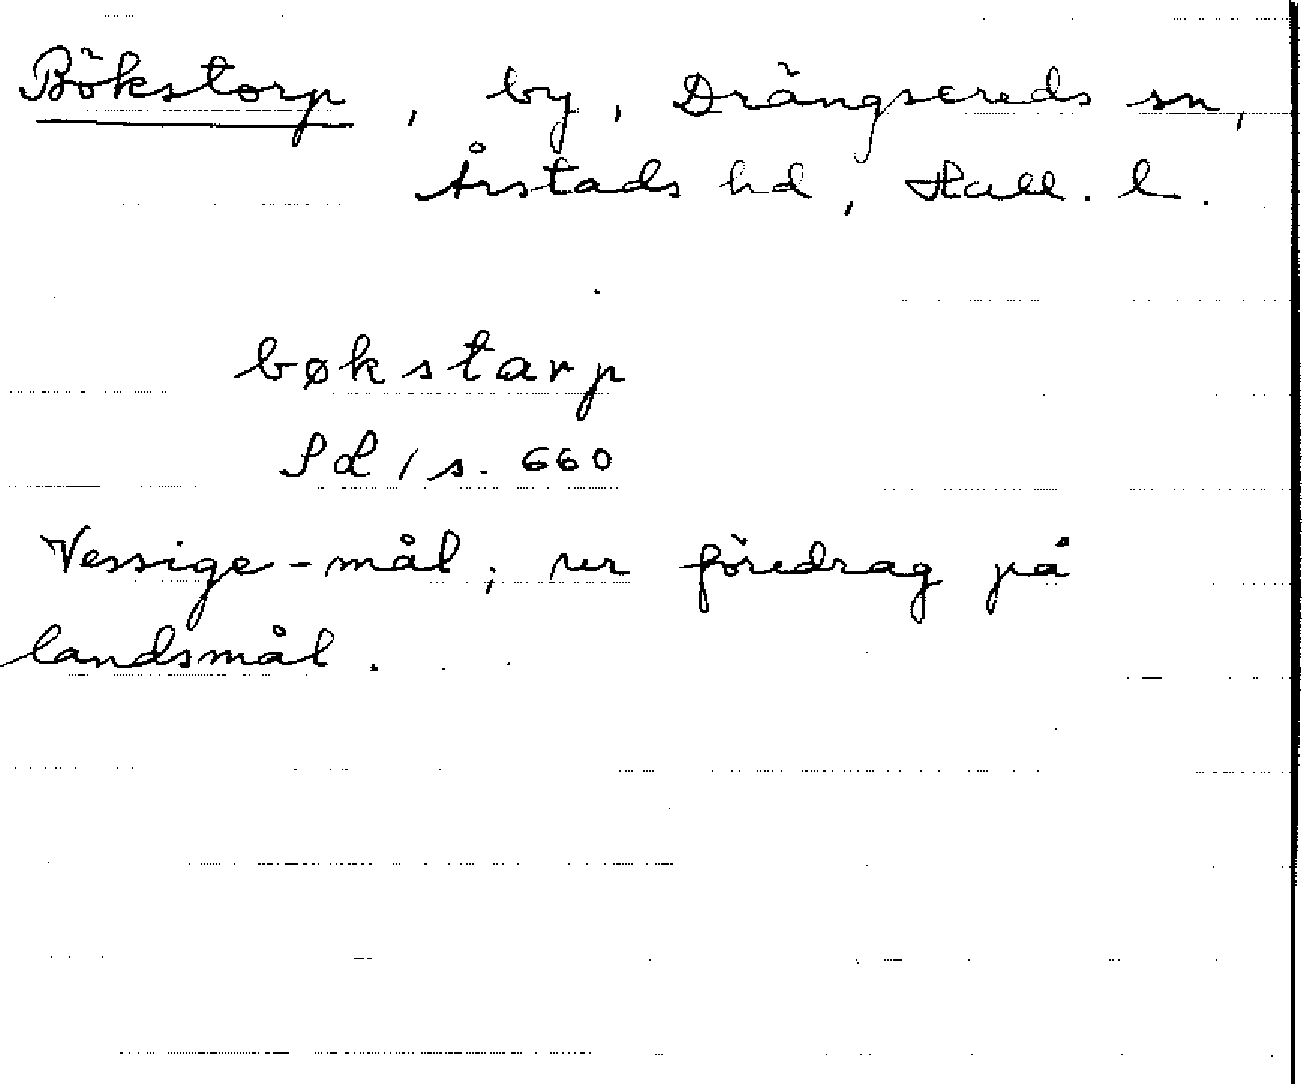 Bökstorp, by, Drängsereds sn,
Årstads hd, Hall. l.
bøkstarp
Sd 1 s. 660
Vessige-mål; ur föredrag på
landsmål.